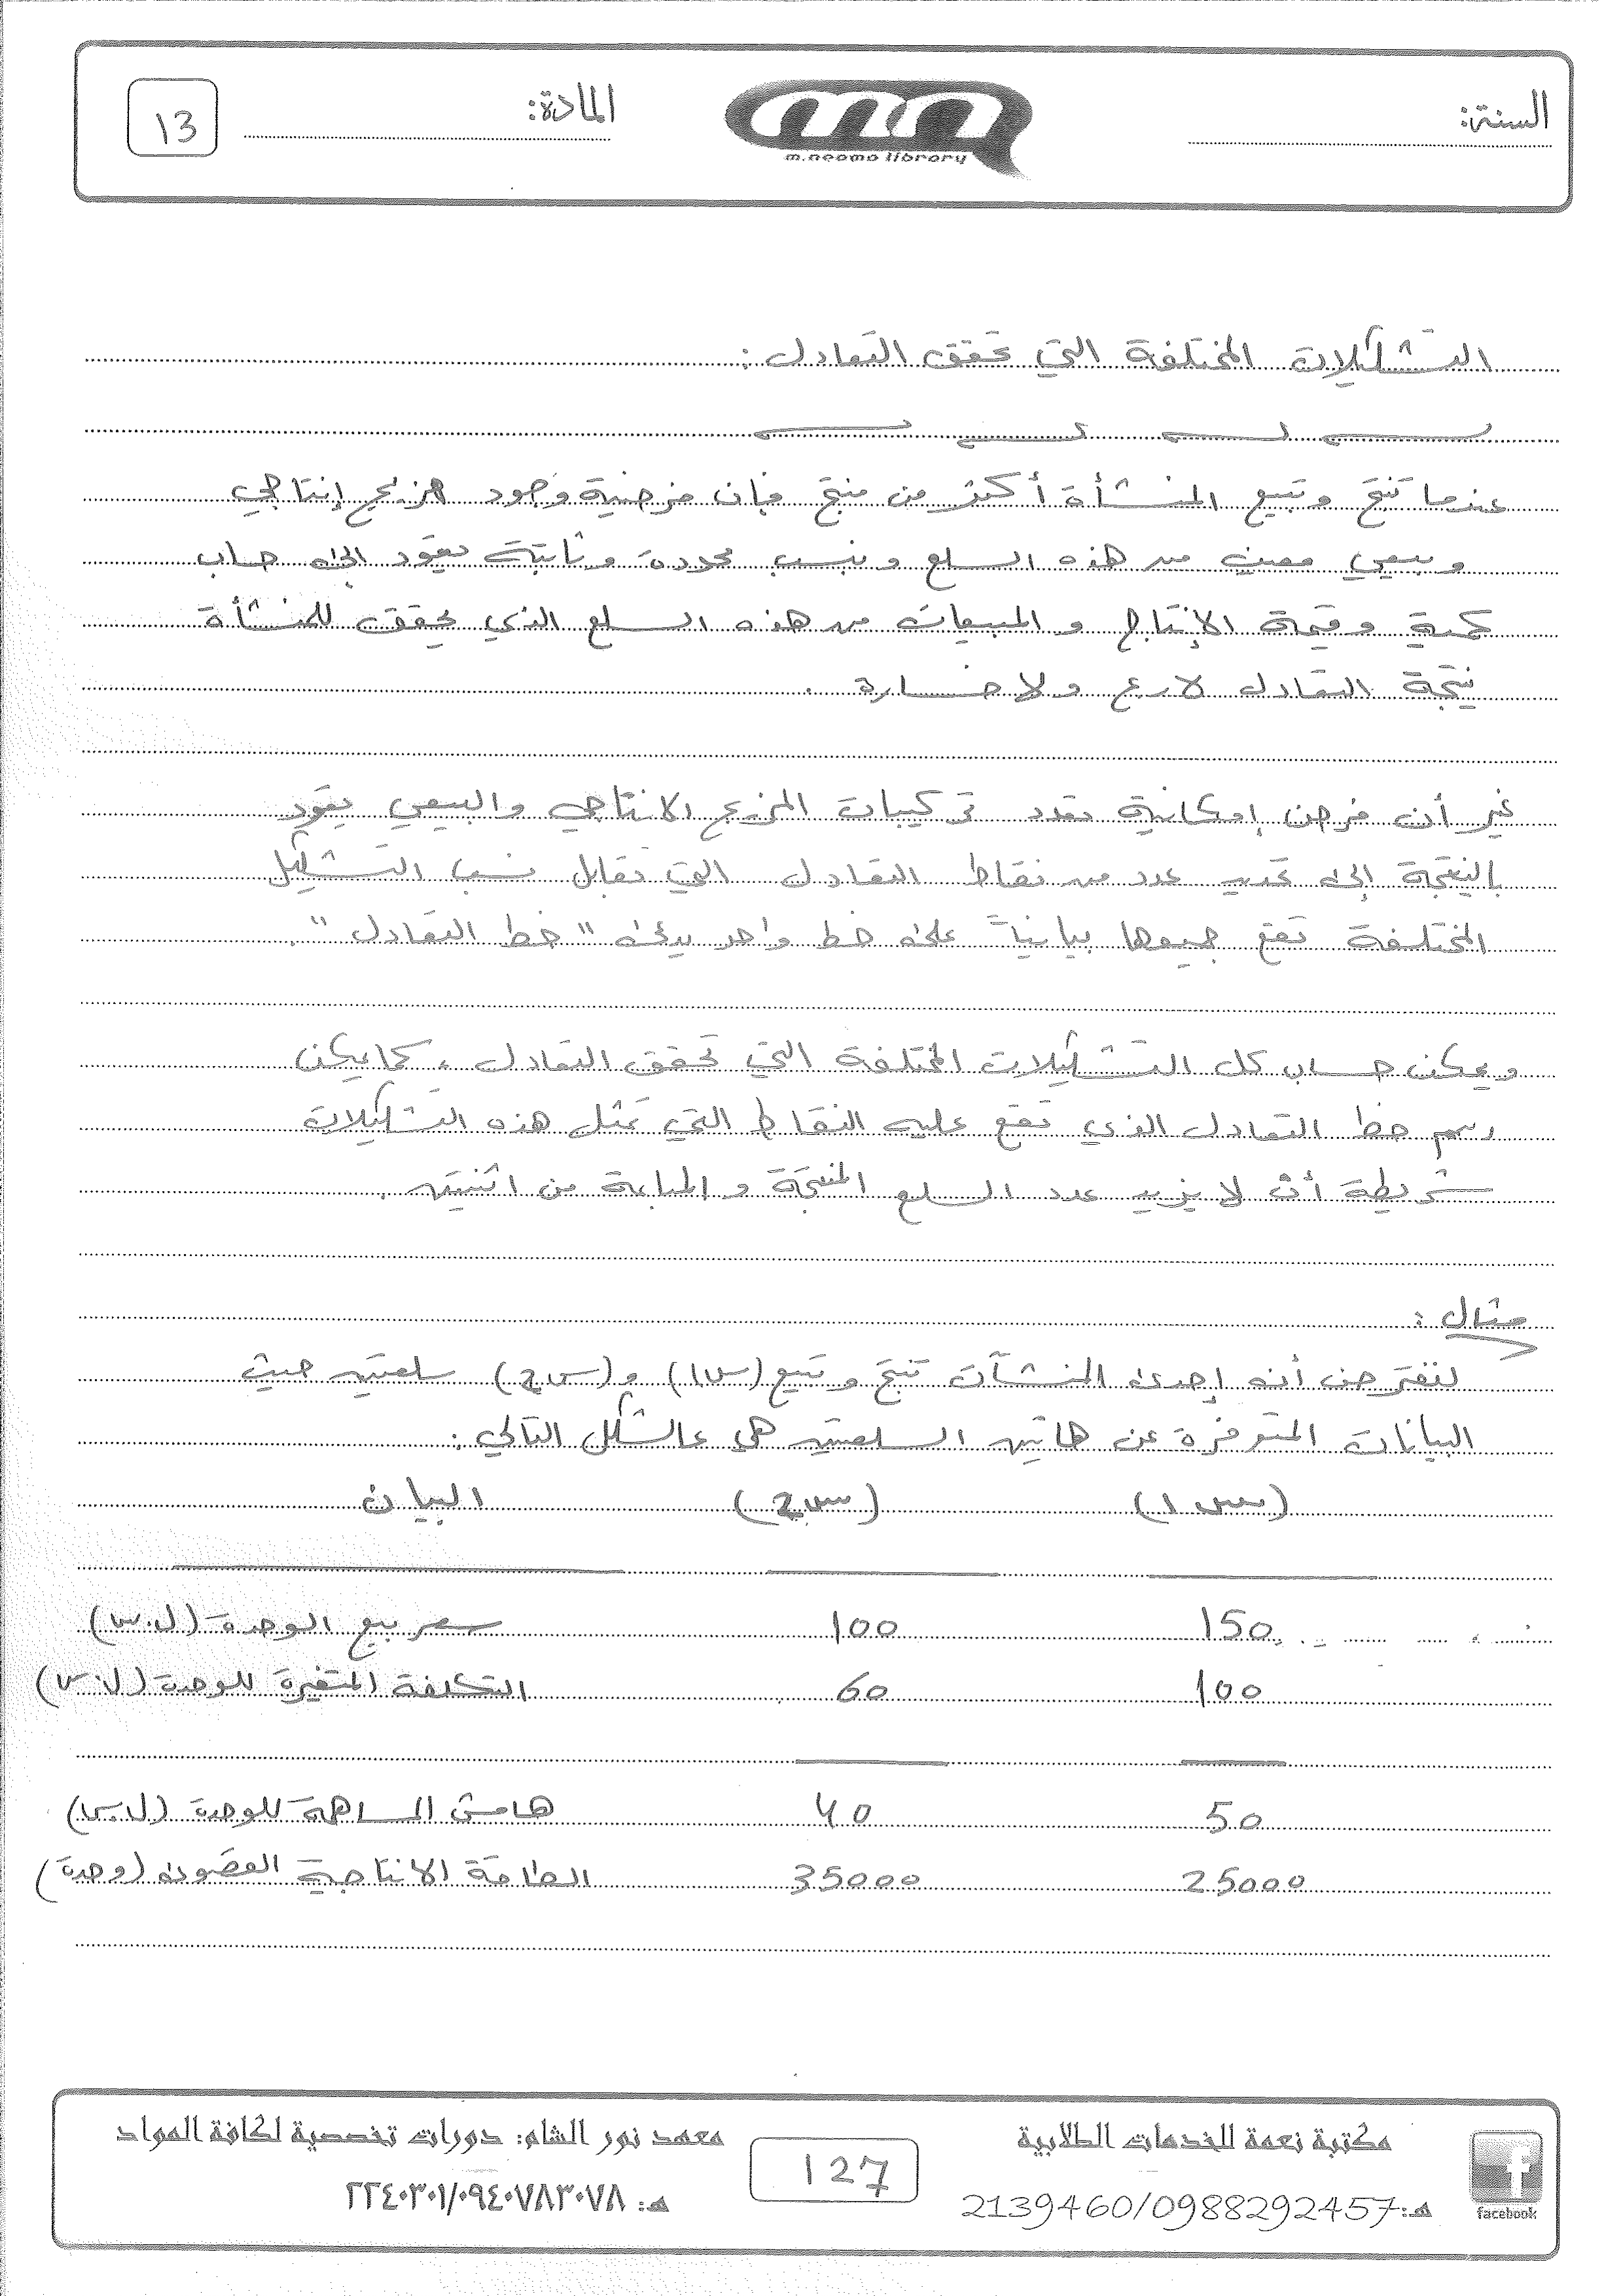 السنة:
m.neama library
المادة:
13
التشكيلات المختلفة التي تحقق التعادل :
عندما تنتج وتبيع المنشأة أكثر من منتج فإن فرضية وجود مزيج إنتاجي
وبيعي معين من هذه السلع وبنسب محددة وثابتة يقود إلى حساب
كمية وقيمة الإنتاج والمبيعات من هذه السلع الذي يحقق للمنشأة
نتيجة التعادل لا ربح ولا خسارة .
غير أن فرض إمكانية تعدد تركيبات المزيج الانتاجي والبيعي يقود
بالنتيجة إلى تحديد عدد من نقاط التعادل التي تقابل نسب التشكيل
المختلفة تقع جميعها بيانياً على خط واحد يدعى " خط التعادل " .
ويمكن حساب كل التشكيلات المختلفة التي تحقق التعادل ، كما يمكن
رسم خط التعادل الذي تقع عليه النقاط التي تمثل هذه التشكيلات
شريطة أن لا يزيد عدد السلع المنتجة و المباعة من اثنين .
مثال :
لنفترض أن إحدى المنشآت تنتج وتبيع (س1) و (س2) سلعتين حيث
البيانات المتوفرة عن هاتين السلعتين هي كالشكل التالي :
(س1) (س2) البيان
150 100 سعر بيع الوحدة (ل.س)
100 60 التكلفة المتغيرة للوحدة (ل.س)
50 40 هامش المساهمة للوحدة (ل.س)
25000 35000 الطاقة الانتاجية القصوى (وحدة)
facebook
مكتبة نعمة للخدمات الطلابية
هـ: 2139460/0988292457
127
معهد نور الشام: دورات تخصصية لكافة المواد
هـ: ٢٢٤٠٣٠١/٠٩٤٠٧٨٣٠٧٨